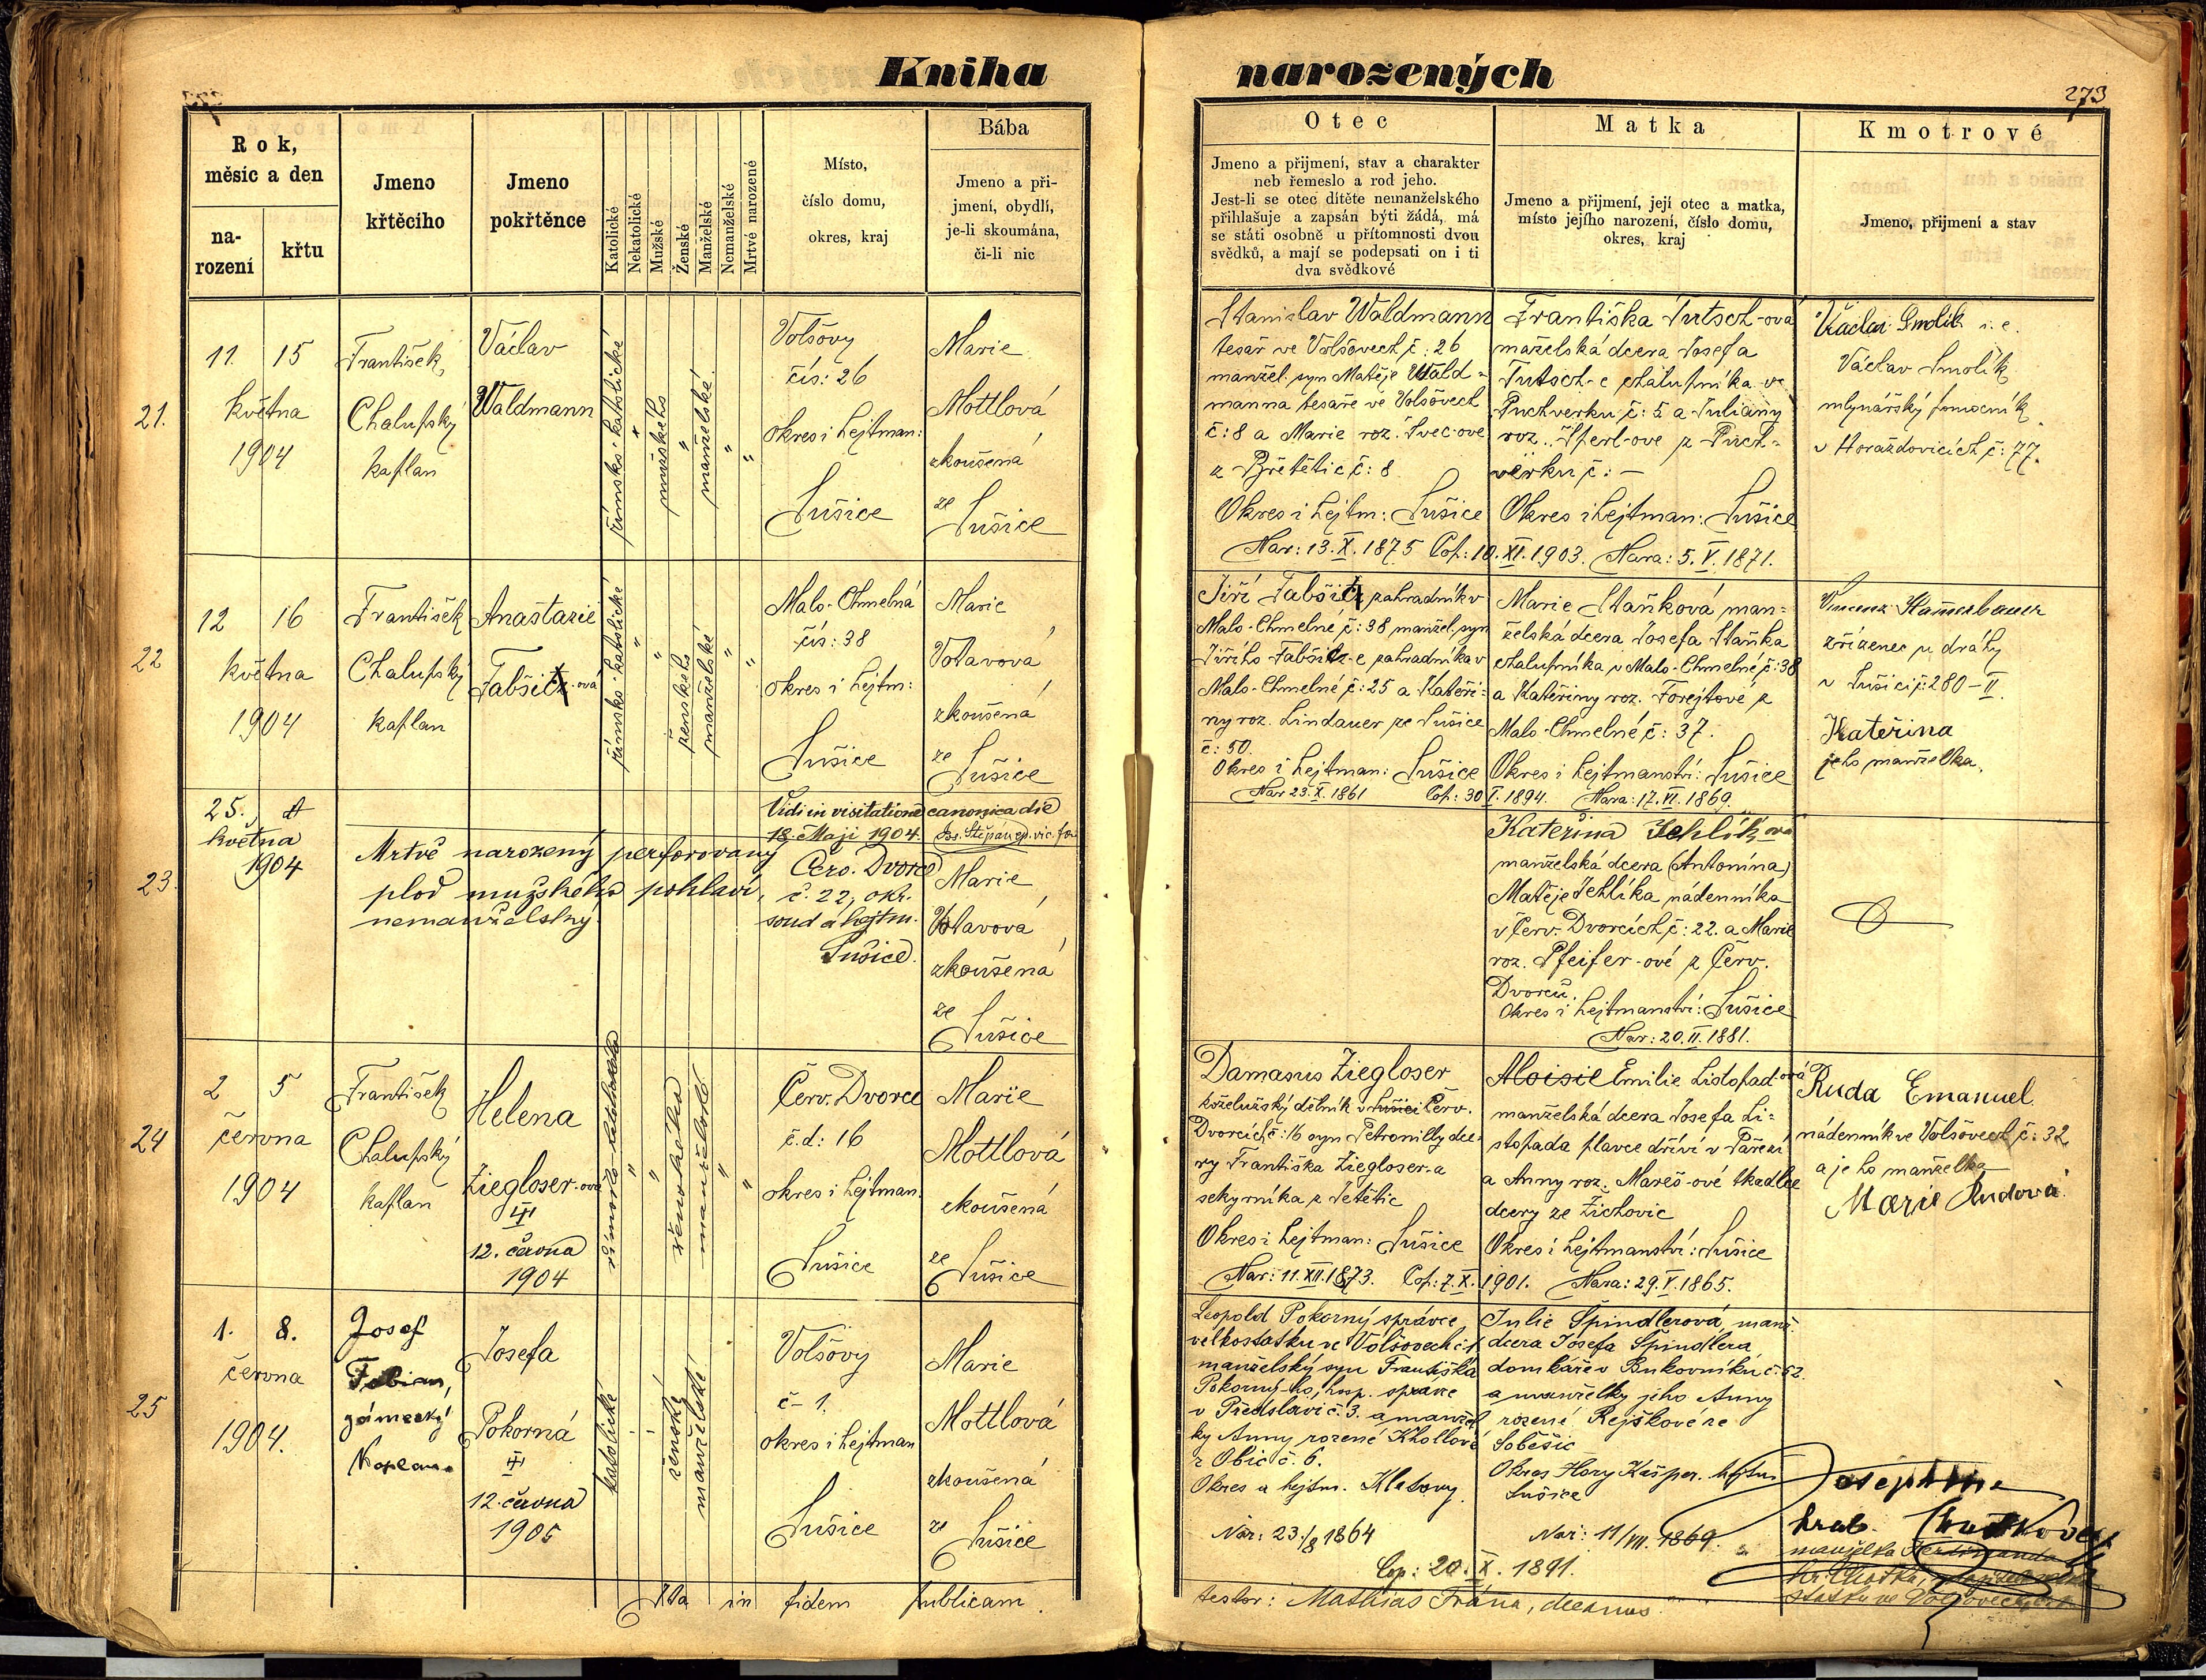 Kniha narozených
273
Rok,
měsíc a den
na-
rození
křtu
Jmeno
křtěcího
Jmeno
pokřtěnce
Katolické
Nekatolické
Mužské
Ženské
Manželské
Nemanželské
Mrtvě narozené
Místo,
číslo domu,
okres, kraj
Bába
Jmeno a při-
jmení, obydlí,
je-li skoumána,
či-li nic
Otec
Jmeno a přijmení, stav a charakter
neb řemeslo a rod jeho.
Jest-li se otec dítěte nemanželského
přihlašuje a zapsán býti žádá, má
se státi osobně u přítomnosti dvou
svědků, a mají se podepsati on i ti
dva svědkové
Matka
Jmeno a přijmení, její otec a matka,
místo jejího narození, číslo domu,
okres, kraj
Kmotrové
Jmeno, přijmení a stav
21.
11. 15
května
1904
František
Chalupský
kaplan
Václav
Waldmann
římsko-katolické
"
mužského
"
manželské
"
"
Volšovy
čís: 26
okres i hejtman:
Sušice
Marie
Mottlová
zkoušená
ze
Sušice
Stanislav Waldmann
tesař ve Volšovech č: 26
manžel. syn Matěje Wald-
manna tesaře ve Volšovech
č: 8 a Marie roz. Švec-ové
z Břetětic č: 8
Okres i hejtm: Sušice
Františka Tutsch-ová
manželská dcera Josefa
Tutsch-e chalupníka ve
Puchverku č: 5 a Juliany
roz. z Puch-
verku č: –
Okres i hejtman: Sušice
Nar: 13. X. 1875 Cop: 10. XI. 1903. Nara: 5. V. 1871.
Václav Smolík i. e.
Václav Smolík
mlynářský pomocník
v Horažďovicích č: 77.
22
12 16
května
1904
František
Chalupský
kaplan
Anastazie
Fabšitz-ová
římsko-katolické
"
"
ženského
manželské
"
"
Malo-Chmelná
čís: 38
okres i hejtm:
Sušice
Marie
Votavová
zkoušená
ze
Sušice
Jiří Fabšitz zahradník v
Malo-Chmelné č: 38 manžel. syn
Jiřího Fabšitz-e zahradníka v
Malo-Chmelné č: 25 a Kateři-
ny roz. Lindauer ze Sušice
č: 50.
Okres i hejtman: Sušice
Marie Staňková man-
želská dcera Josefa Staňka
chalupníka v Malo-Chmelné č: 38
a Kateřiny roz. Forejtové z
Malo-Chmelné č: 37.
Okres i hejtmanství: Sušice
Nar 23. X. 1861 Cop: 30 I. 1894. Nara: 17. VI. 1869.
Vincenz
zřízenec u dráhy
v Sušici č: 280-II.
Kateřina
jeho manželka.
Vidi in visitatione canonica die
18. Maji 1904. Jos. Štěpánek vic. for.
23.
25.
května
1904
Mrtvě narozený perforovaný
plod mužského pohlaví,
nemanželský.
Červ. Dvorce
č. 22, okr.
soud a hejtm.
Sušice.
Marie
Votavová
zkoušená
ze
Sušice
Kateřina Jehlíková
manželská dcera (Antonína)
Matěje Jehlíka nádenníka
v Červ. Dvorcích č: 22. a Marie
roz. Pfeifer-ové z Červ.
Dvorců.
Okres i hejtmanství: Sušice
Nar: 20. II. 1881.
24
2 5
června
1904
František
Chalupský
kaplan
Helena
Ziegloser-ová
12. června
1904
římsko-katolické
"
"
ženského
manželské
"
"
Červ. Dvorce
č. d: 16
okres i hejtman.
Sušice
Marie
Mottlová
zkoušená
ze
Sušice
Damasus Ziegloser
koželužský dělník v Sušici Červ.
Dvorcích č: 16 syn Petronilly dce-
ry Františka Ziegloser-a
sekyrníka z Tetětic
Okres i hejtman: Sušice
Aloisie Emilie Listopad-ová
manželská dcera Josefa Li-
stopada plavce dříví v Paření
a Anny roz. Mareš-ové tkadlce
dcery ze Žichovic
Okres i hejtmanství: Sušice
Nar: 11. XII. 1873. Cop: 7. X. 1901. Nara: 29. V. 1865.
Ruda Emanuel
nádenník ve Volšovech č: 32
a jeho manželka
Marie Rudová
25
1. 8.
června
1904.
Josef
Fabian,
zámecký
kaplan.
Josefa
Pokorná
12. června
1905
katolické
ženské
manželské
Volšovy
č- 1.
okres i hejtman
Sušice
Marie
Mottlová
zkoušená
ze
Sušice
Leopold Pokorný správce
velkostatku ve Volšovech č 1
manželský syn Františka
Pokorný-ho, hosp. správce
v Předslavi č. 3. a manžel
ky Anny rozené Khollové
z Obic č. 6.
Okres a hejtm. Klatovy.
Nar: 23/8 1864
Julie Špindlerová, manž.
dcera Josefa Špindlera
domkáře v Bukovníku č. 62.
a manželky jeho Anny
rozené Rejškové ze
Soběšic
Okres Hory Kašper. hejtm
Sušice
Nar: 11/VII. 1869.
Cop: 20. X. 1891.
Josephine
hrab.
manželka Ferdinanda
statku ve Volšovech
Ita in fidem publicam
testor: Mathias Frána, decanus